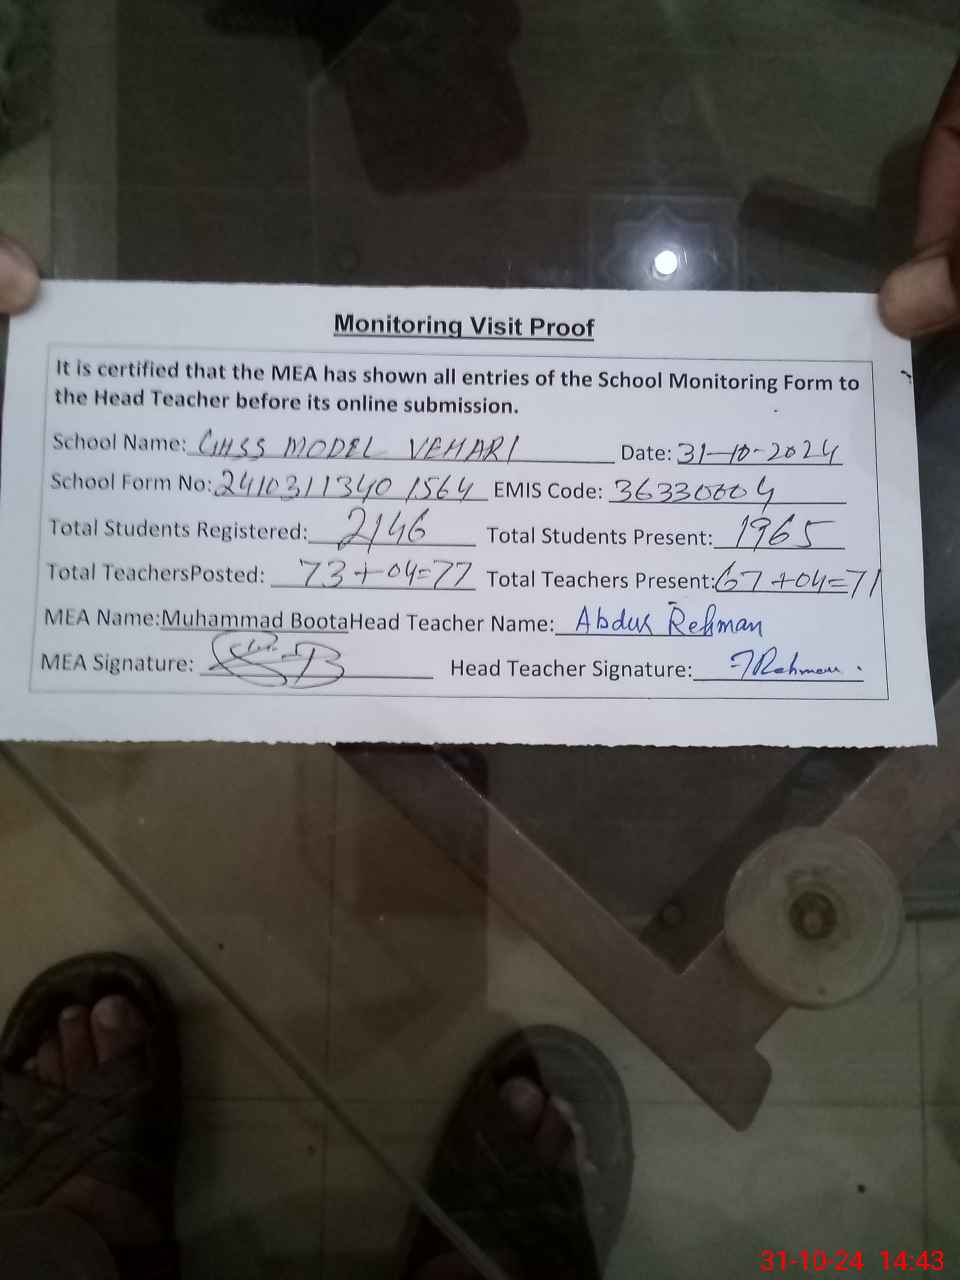 Monitoring Visit Proof
It is certified that the MEA has shown all entries of the School Monitoring Form to
the Head Teacher before its online submission.
School Name: GHSS MODEL VEHARI Date: 31-10-2024
School Form No: 2410311340 1564 EMIS Code: 36330004
Total Students Registered: 2146 Total Students Present: 1965
Total TeachersPosted: 73+04=77 Total Teachers Present: 67+04=71
MEA Name:Muhammad BootaHead Teacher Name: Abdur Rehman
MEA Signature: Head Teacher Signature: Rehman.
31-10-24 14:43